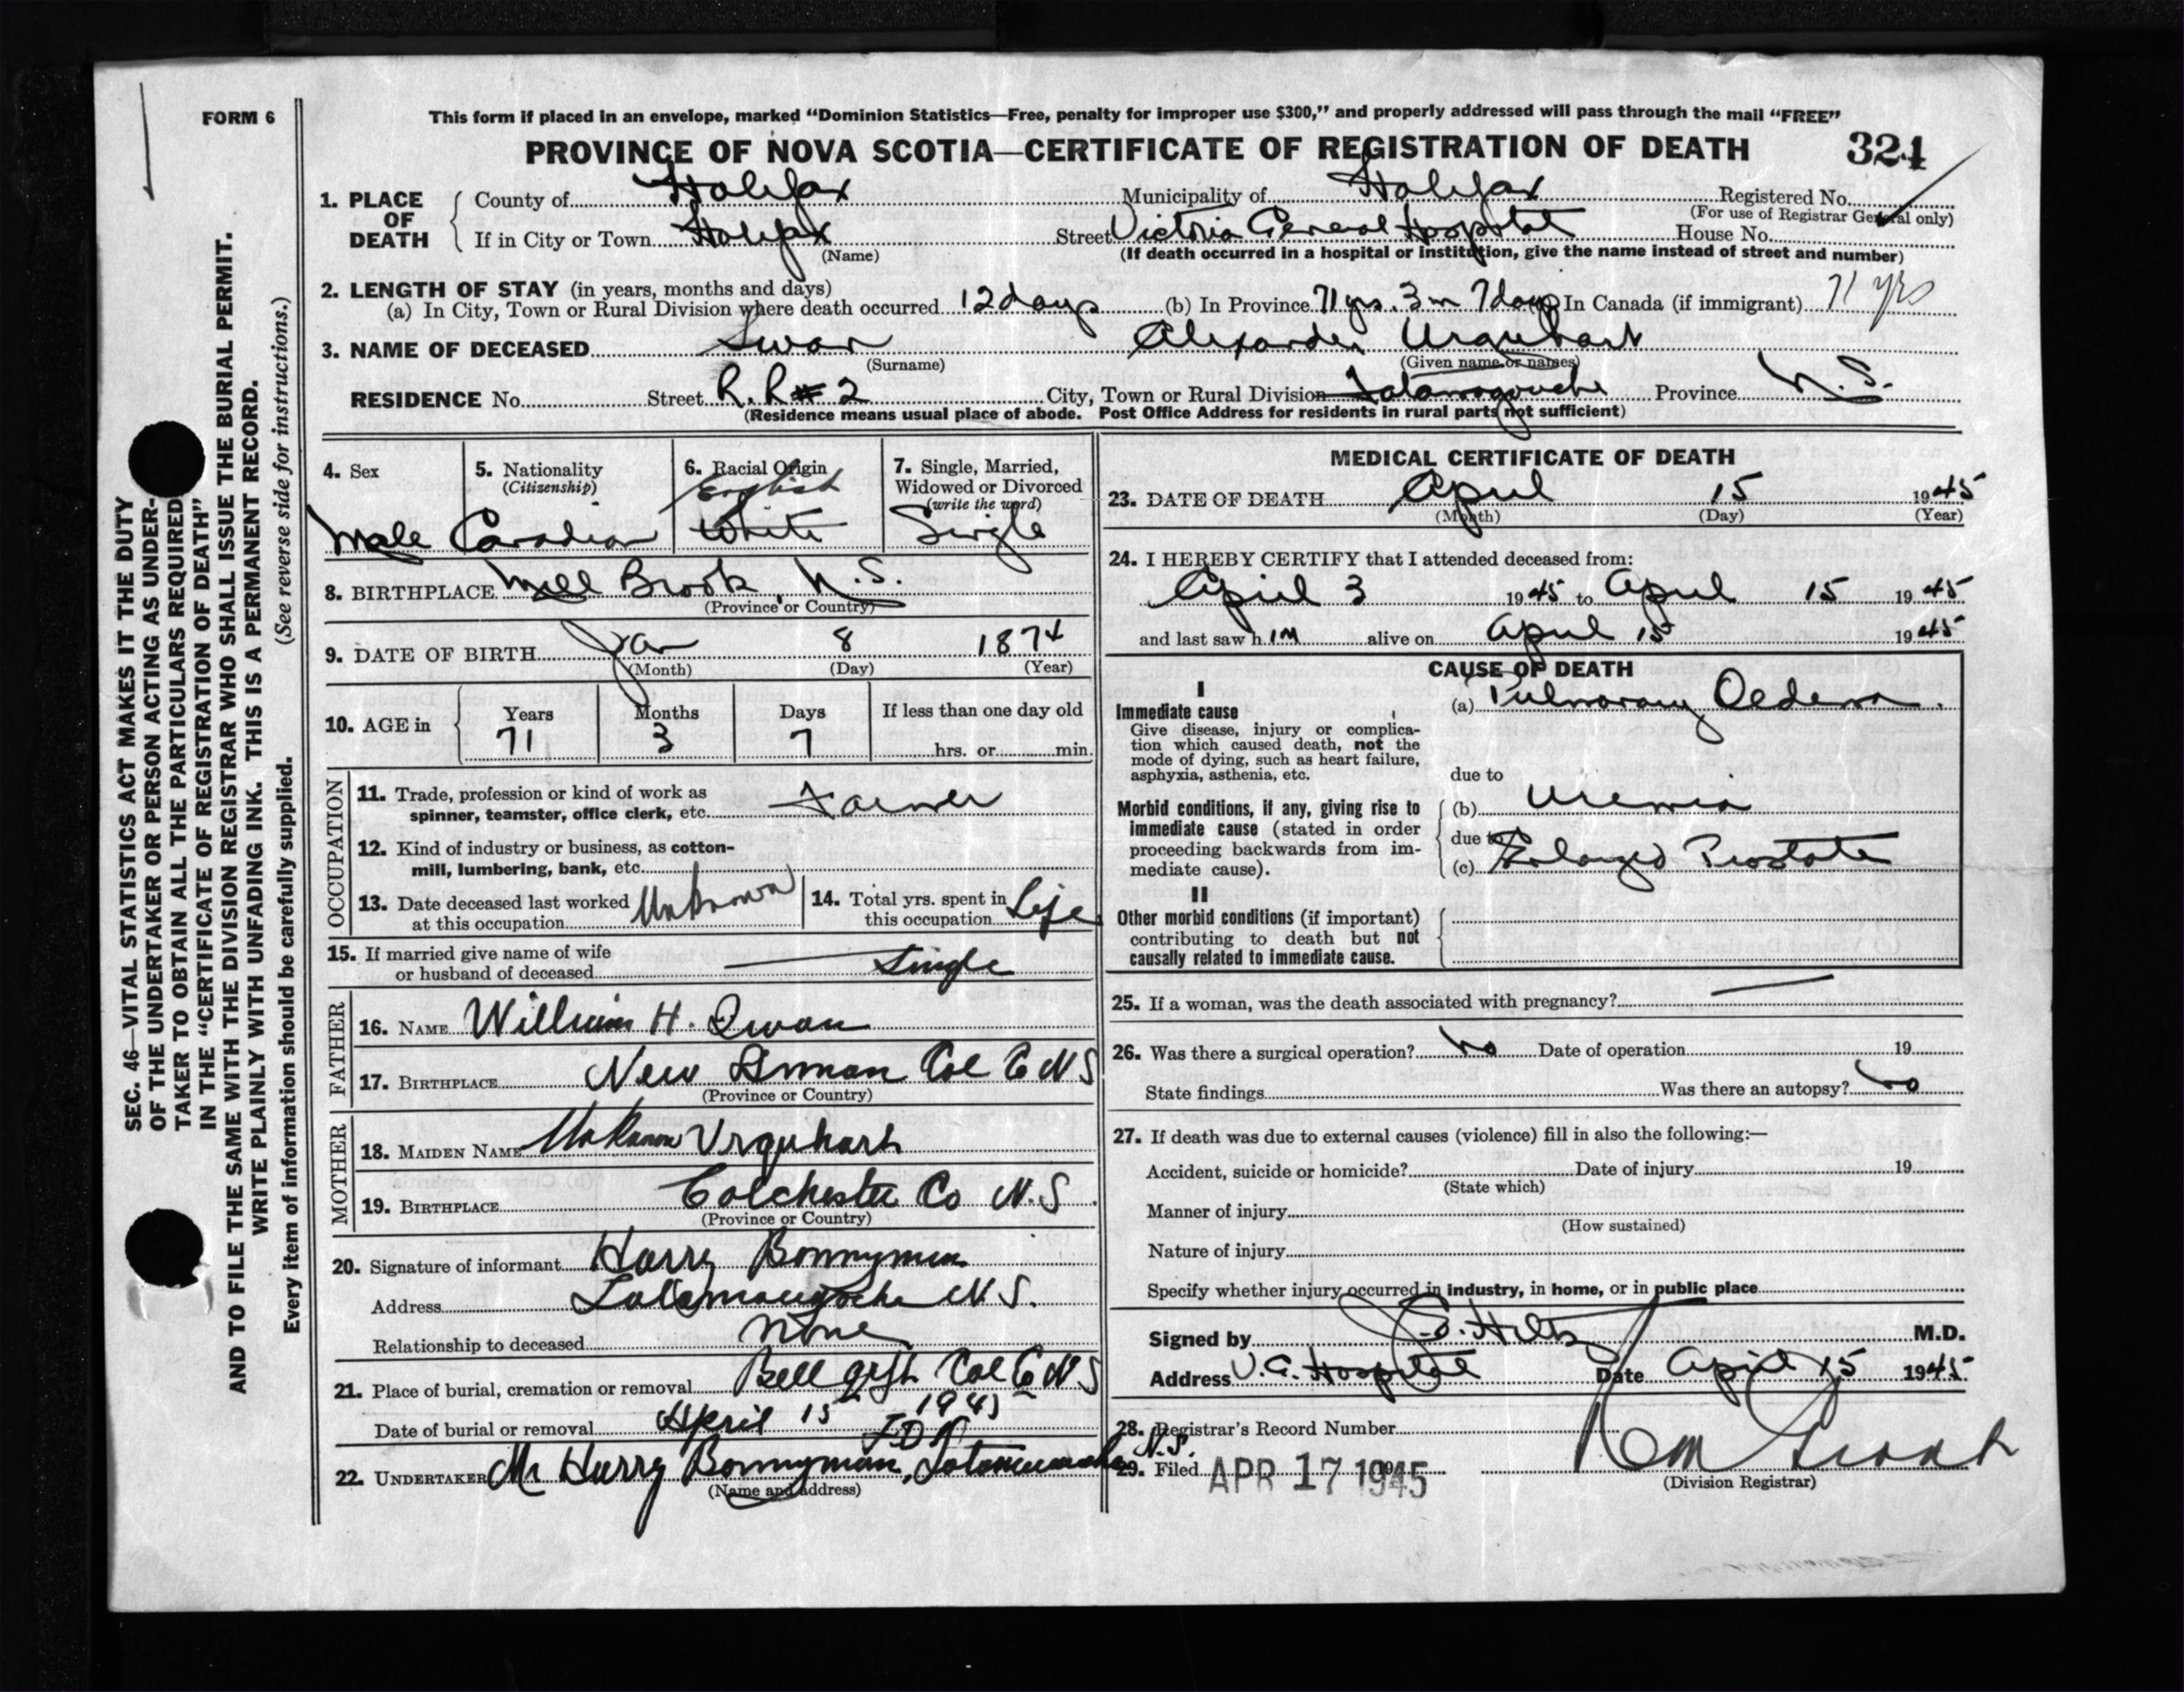 FORM 6
This form if placed in an envelope, marked "Dominion Statistics—Free, penalty for improper use $300," and properly addressed will pass through the mail "FREE"
PROVINCE OF NOVA SCOTIA—CERTIFICATE OF REGISTRATION OF DEATH 324
1. PLACE OF DEATH
County of Halifax Municipality of Halifax Registered No.
(For use of Registrar General only)
If in City or Town Halifax Street Victoria General Hospital House No.
(Name) (If death occurred in a hospital or institution, give the name instead of street and number)
2. LENGTH OF STAY (in years, months and days)
(a) In City, Town or Rural Division where death occurred 12 days (b) In Province 71 yrs. 3 m 7 days In Canada (if immigrant) 71 yrs
3. NAME OF DECEASED Swan Alexander Urquhart
(Surname) (Given name or names)
RESIDENCE No. Street R. R # 2 City, Town or Rural Division Tatamagouche Province N.S.
(Residence means usual place of abode. Post Office Address for residents in rural parts not sufficient)
4. Sex Male
5. Nationality (Citizenship) Canadian
6. Racial Origin English White
7. Single, Married, Widowed or Divorced (write the word) Single
8. BIRTHPLACE Mill Brook, N.S.
(Province or Country)
9. DATE OF BIRTH Jan 8 1874
(Month) (Day) (Year)
10. AGE in Years 71 Months 3 Days 7 If less than one day old hrs. or min.
OCCUPATION
11. Trade, profession or kind of work as spinner, teamster, office clerk, etc. Farmer
12. Kind of industry or business, as cotton-mill, lumbering, bank, etc.
13. Date deceased last worked at this occupation Unknown
14. Total yrs. spent in this occupation Life
15. If married give name of wife or husband of deceased Single
FATHER
16. NAME William H. Swan
17. BIRTHPLACE New Annan Col Co NS
(Province or Country)
MOTHER
18. MAIDEN NAME Unknown Urquhart
19. BIRTHPLACE Colchester Co N.S.
(Province or Country)
20. Signature of informant Harry Bonnyman
Address Tatamagouche N S.
Relationship to deceased None
21. Place of burial, cremation or removal Bell Col Co NS
Date of burial or removal April 15 1945
22. UNDERTAKER Mr Harry Bonnyman, Tatamagouche N.S.
(Name and address)
MEDICAL CERTIFICATE OF DEATH
23. DATE OF DEATH April 15 1945
(Month) (Day) (Year)
24. I HEREBY CERTIFY that I attended deceased from:
April 3 1945 to April 15 1945
and last saw him alive on April 15 1945
CAUSE OF DEATH
I
Immediate cause
Give disease, injury or complication which caused death, not the mode of dying, such as heart failure, asphyxia, asthenia, etc.
(a) Pulmonary Oedema.
due to
Morbid conditions, if any, giving rise to immediate cause (stated in order proceeding backwards from immediate cause).
(b) Uremia
due to
(c) Enlarged Prostate
II
Other morbid conditions (if important) contributing to death but not causally related to immediate cause.
25. If a woman, was the death associated with pregnancy?
26. Was there a surgical operation? no Date of operation 19
State findings Was there an autopsy? no
27. If death was due to external causes (violence) fill in also the following:—
Accident, suicide or homicide? Date of injury 19
(State which)
Manner of injury
(How sustained)
Nature of injury
Specify whether injury occurred in industry, in home, or in public place
Signed by M.D.
Address V.G. Hospital Date April 15 1945
28. Registrar's Record Number
29. Filed APR 17 1945
(Division Registrar)
SEC. 46—VITAL STATISTICS ACT MAKES IT THE DUTY
OF THE UNDERTAKER OR PERSON ACTING AS UNDER-
TAKER TO OBTAIN ALL THE PARTICULARS REQUIRED
IN THE "CERTIFICATE OF REGISTRATION OF DEATH"
AND TO FILE THE SAME WITH THE DIVISION REGISTRAR WHO SHALL ISSUE THE BURIAL PERMIT.
WRITE PLAINLY WITH UNFADING INK. THIS IS A PERMANENT RECORD.
(See reverse side for instructions.)
Every item of information should be carefully supplied.